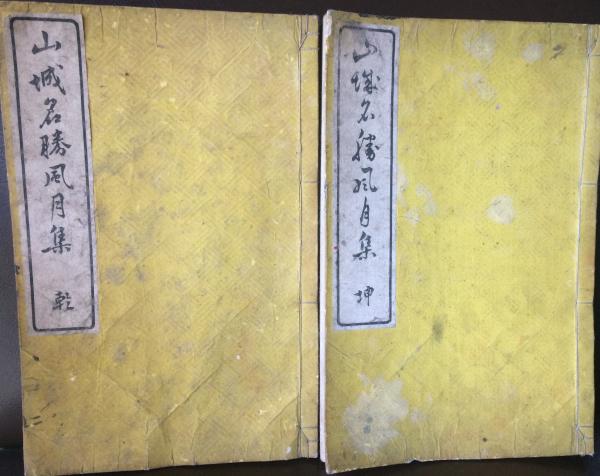 山城名勝風月集 乾
山城名勝風月集 坤